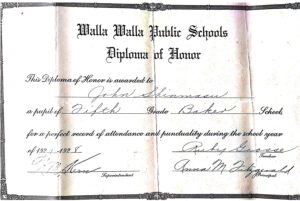 Walla Walla Public Schools
Diploma of Honor
This Diploma of Honor is awarded to
John
a pupil of Fifth Grade Baker School
for a perfect record of attendance and punctuality during the school year
1927-1928 Ruby Grosse
Teacher
Anna M.
Superintendent Principal